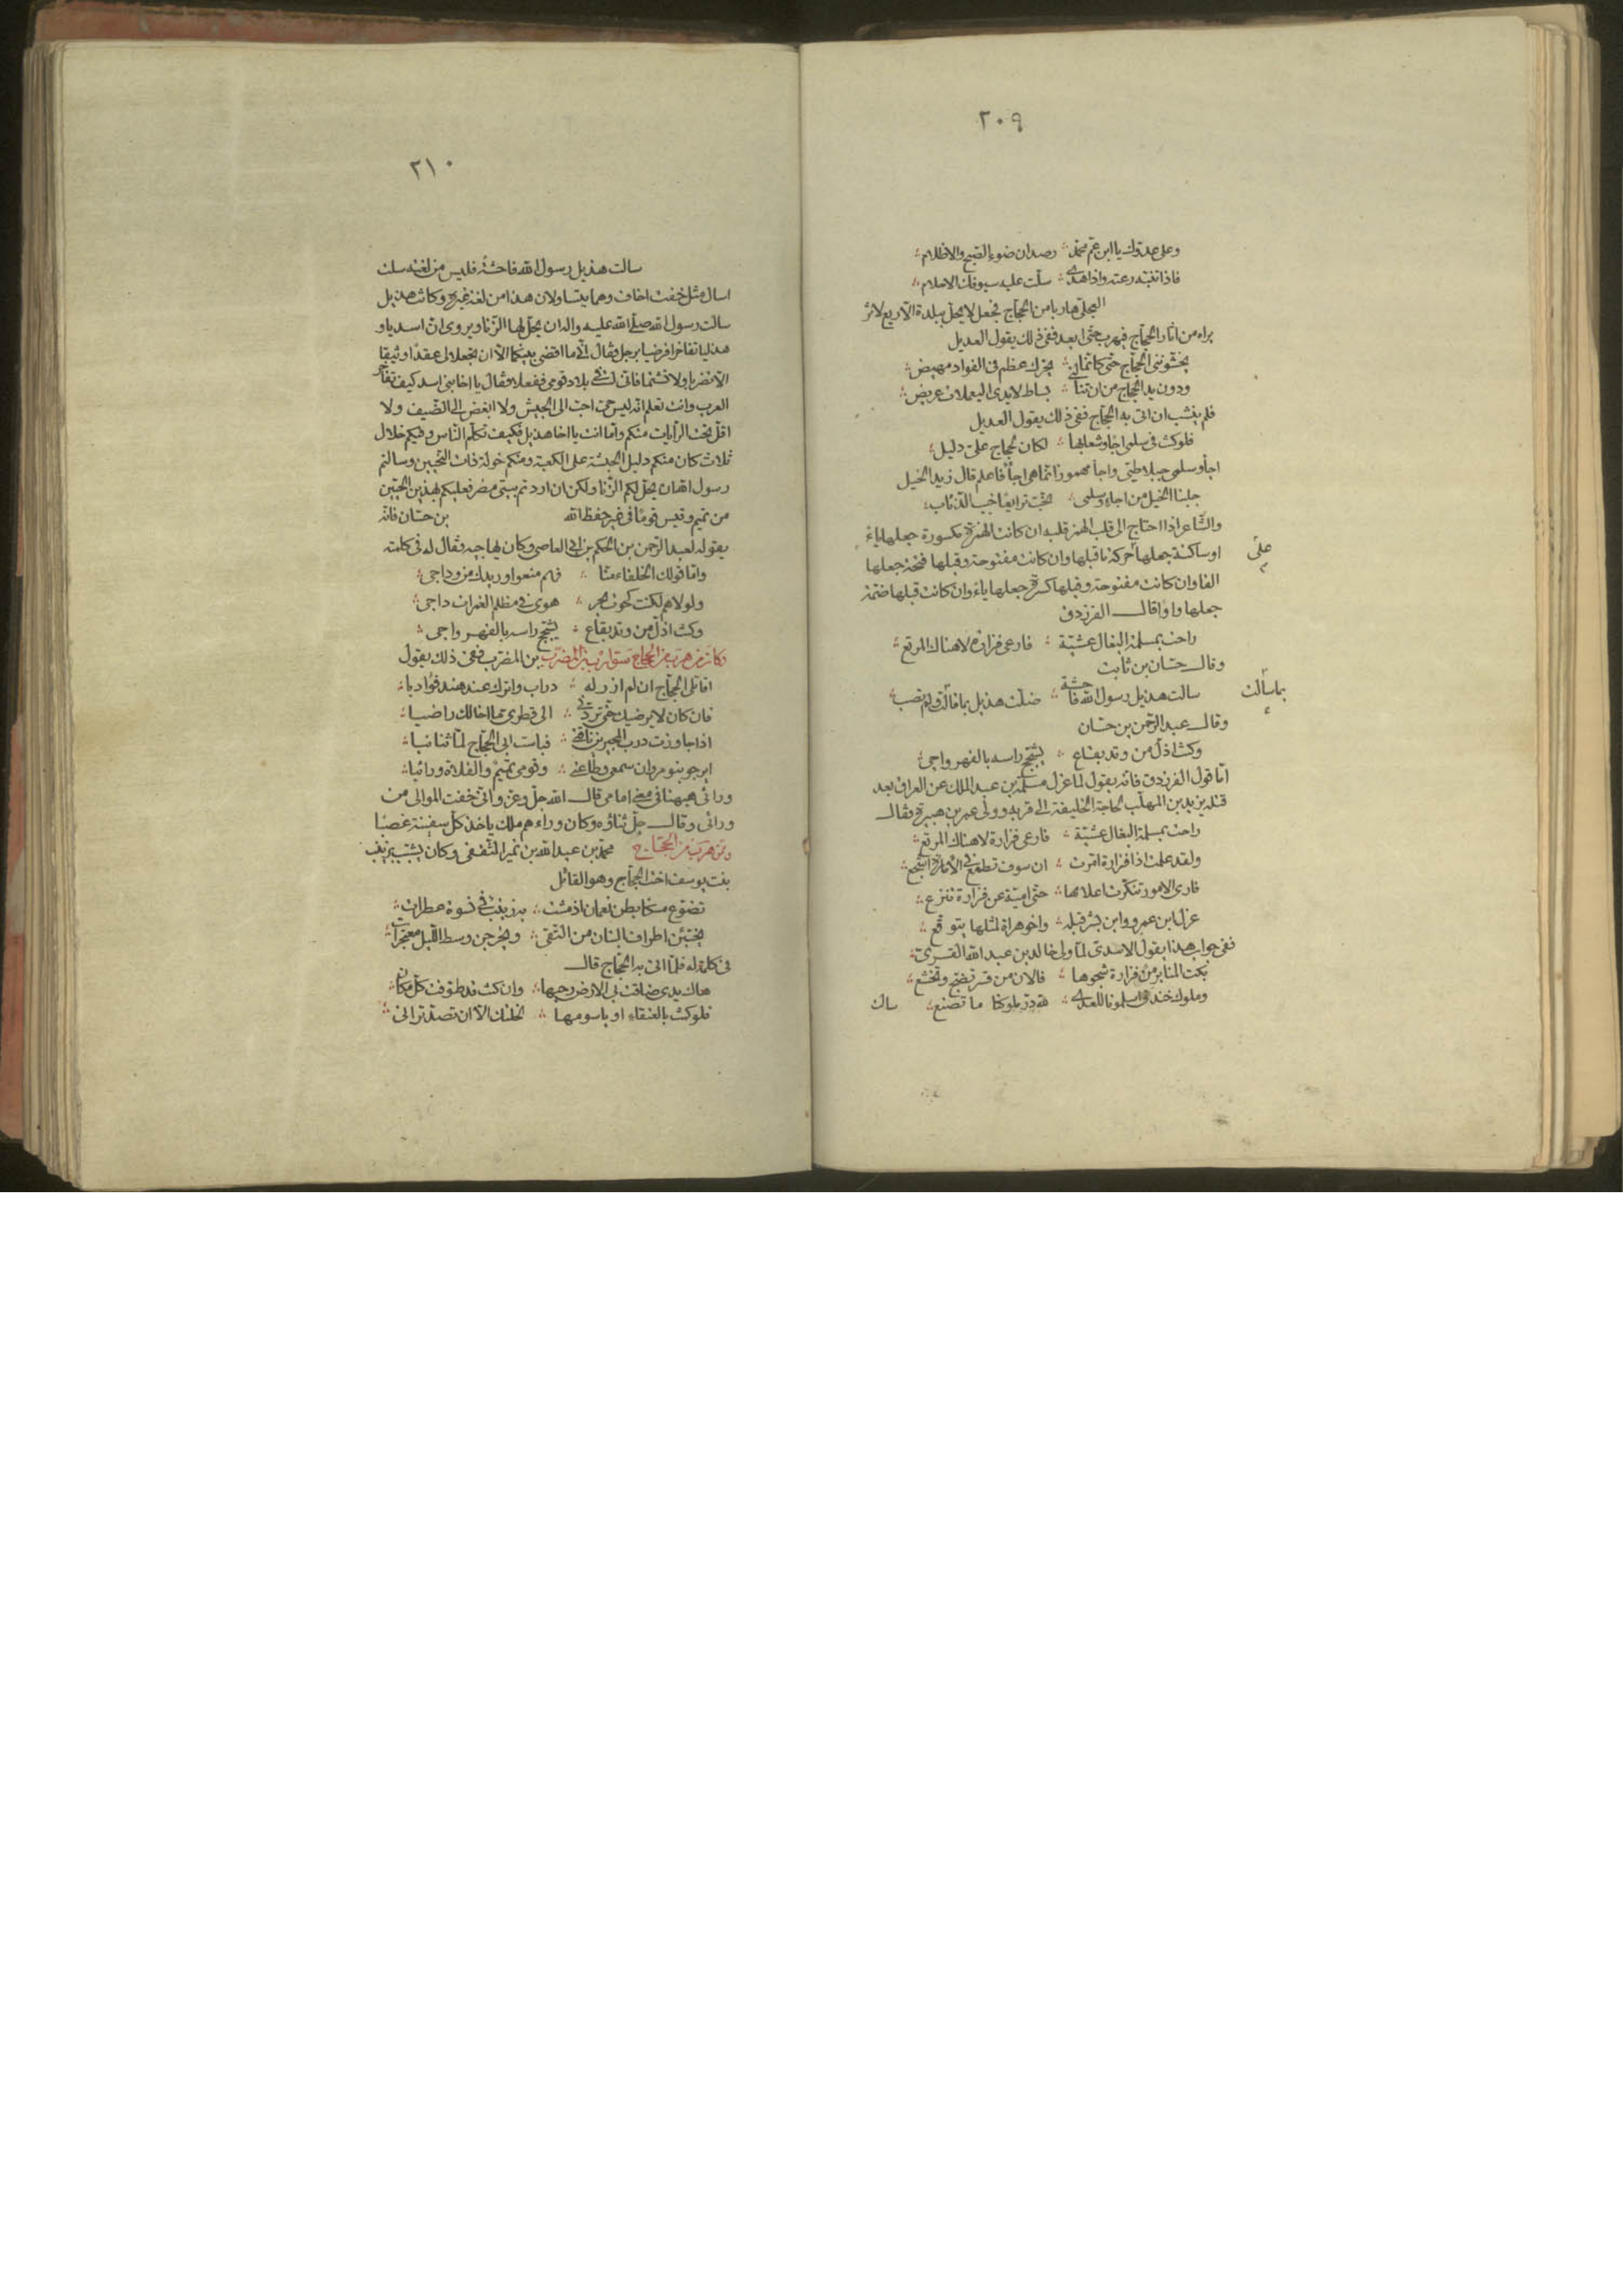 ٢٠٩
وعلى عدوك يا ابن عم محمد ؞ رصدان ضوء الصبح والاظلام ؞
فاذا تنبه رعته واذا هدى ؞ سلت عليه سيوفك الاحلام ؞
البجلى هاربا من الحجاج فجعل لا يحل ببلدة الا ريع لاثر
يراه من اثار الحجاج فهرب حتى ابعد ففى ذلك يقول العديل
يخشوننى الحجاج حتى كانما ؞ يحرك عظم فى الفواد مهيض ؞
ودون يد الحجاج من ان تنا ؞ بساط لايدى اليعملات عريض ؞
فلم ينشب ان اتى به الحجاج ففى ذلك يقول العديل
فلو كنت فى سلمى اجا وشعابها ؞ لكان لحجاج على دليل ؞
اجا وسلمى جبلا طيى واجا مهموز انما هى اجأ فاعلم قال زيد الخيل
جلبنا الخيل من اجاء وسلمى ؞ تخب ترايعا خبب الذئاب ؞
والشاعر اذا احتاج الى قلب الهمز قلبه ان كانت الهمزة مكسورة جعلها ياء
او ساكنة جعلها حركة ما قبلها وان كانت مفتوحة وقبلها فتحة جعلها
على
الفا وان كانت مفتوحة وقبلها كسرة جعلها ياء وان كانت قبلها ضمة
جعلها واوا قال الفرزدق
راحت بمسلمة البغال عشية ؞ فارعى فزارة لا هناك المرتع ؞
وقال حسان بن ثابت
سالت هذيل رسول الله فاحشة ؞ ضلت هذيل بما قالت ولم تصب ؞
بما سألت
وقال عبد الرحمن بن حسان
وكنت اذل من وتد بقاع ؞ يشجج راسه بالفهر واجى ؞
اما قول الفرزدق فانه يقول لما عزل مسلمة بن عبد الملك عن العراق بعد
قتله يزيد بن المهلب لحاجة الخليفة الى قربه وولى عمر بن هبيرة فقال
راحت بمسلمة البغال عشية ؞ فارعى فزارة لا هناك المرتع ؞
ولقد علمت اذا فزارة امرت ؞ ان سوف تطمع فى الامارة اشجع ؞
فارى الامور تنكرت اعلامها ؞ حتى امية عن فزارة تنزع ؞
عزل ابن عمرو وابن بشر قبله ؞ واخو هراة لمثلها يتوقع ؞
ففى جواب هذا يقول الاسدى لما ولى خالد بن عبد الله القسرى ؞
بكت المنابر من فزارة شجوها ؞ فالان من قسر تضج وتخشع ؞
وملوك خندف اسلمونا للعدى ؞ لله در ملوكنا ما تصنع ؞
سالت
٢١٠
سالت هذيل رسول الله فاحشة فليس من لغته سلت
اسال مثل خفت اخاف وهما يتساولان هذا من لغة غيره وكانت هذيل
سالت رسول الله صلى الله عليه واله ان يحل لها الزنا ويروى ان اسديا و
هذليا تفاخرا فرضيا برجل فقال انى ما اقضى بينكما الا ان تجعلا لى عقدا وثيقا
الا تضربا ولا تشتما فانى لست فى بلاد قومى ففعلا فقال يا اخا بنى اسد كيف تفاخر
العرب وانت تعلم انه ليس حى احب الى الجيش ولا ابغض الى الضيف ولا
اقل تحت الرايات منكم واما انت يا اخا هذيل فكيف تكلم الناس وفيكم خلال
ثلاث كان منكم دليل الحبشة على الكعبة ومنكم خولة ذات النحيين وسالتم
رسول الله ان يحل لكم الزنا ولكن ان اردتم بيتى مضر فعليكم بهذين الحيين
من تميم وقيس قوما فى غير حفظ الله بن حسان فانه
يقوله لعبد الرحمن بن الحكم بن ابى العاصى وكان يهاجيه فقال له فى كلمته
واما قولك الخلفاء منا ؞ فهم منعوا وريدك من وداجى ؞
ولولاهم لكنت كحوت بحر ؞ هوى فى مظلم الغمرات داجى ؞
وكنت اذل من وتد بقاع ؞ يشجج راسه بالفهر واجى ؞
وكان ممن هرب من الحجاج سوار بن المضرب بن المضرب ففى ذلك يقول
اقاتلى الحجاج ان لم ازر له ؞ دراب واترك عند هند فؤاديا ؞
فان كان لا يرضيك حتى تردنى ؞ الى قطرى ما اخالك راضيا ؞
اذا جاوزت درب المجيرين ناقتى ؞ فباست ابى الحجاج لما ثنانيا ؞
ايرجو بنو مروان سمعى وطاعتى ؞ وقومى تميم والفلاة ورائيا ؞
ورائى هيهنا فى معنى امامى قال الله جل وعز وانى خفت الموالى من
ورائى وقال جل ثناؤه وكان وراءهم ملك ياخذ كل سفينة غصبا
وممن هرب من الحجاج محمد بن عبد الله بن نمير الثقفى وكان يشبب بزينب
بنت يوسف اخت الحجاج وهو القائل
تضوع مسكا بطن نعمان اذ مشت ؞ به زينب فى نسوة عطرات ؞
يخبئن اطراف البنان من التقى ؞ ويخرجن وسط الليل معتجرات ؞
فى كلمة له فلما اتى به الحجاج قال
هاك يدى ضاقت بى الارض رحبها ؞ وان كنت قد طوفت كل مكان ؞
فلو كنت بالعنقاء او باسومها ؞ لخلتك الا ان تصد ترانى ؞